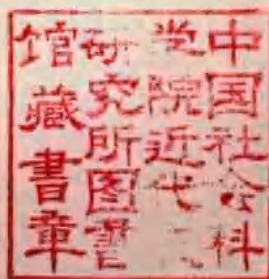 中国社会科
学院近代
研究所图書
馆藏書章